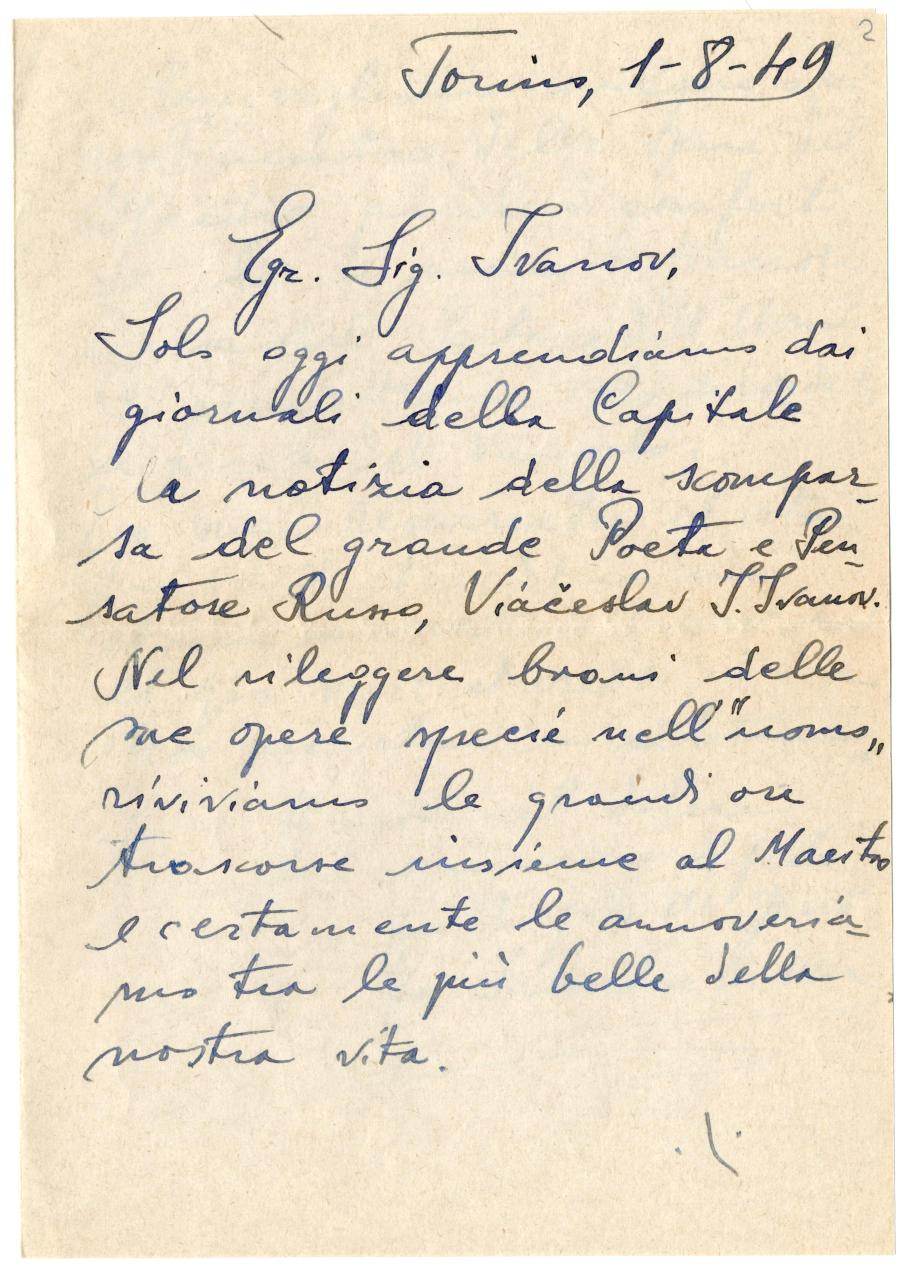 2
Torino, 1-8-49
Egr. Sig. Ivanov,
Solo oggi apprendiamo dai
giornali della Capitale
la notizia della scompar-
sa del grande Poeta e Pen-
satore Russo, Viáčeslav I. Ivanov.
Nel rileggere brani delle
sue opere specie nell'"uomo„
riviviamo le grandi ore
trascorse insieme al Maestro
e certamente le annoveria-
mo tra le più belle della
nostra vita.
./.